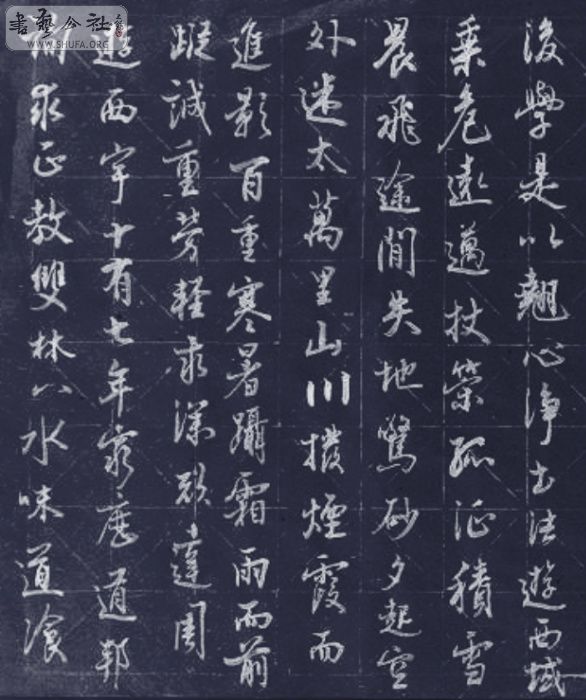 後學是以翹心淨土法遊西域
乘危遠邁杖策孤征積雪
晨飛途間失地驚砂夕起空
外迷天萬里山川撥煙霞而
進影百重寒暑躡霜雨而前
蹤誠重勞輕求深願達周
遊西宇十有七年窮歷道邦
詢求正教雙林八水味道飡
書藝公社
WWW.SHUFA.ORG